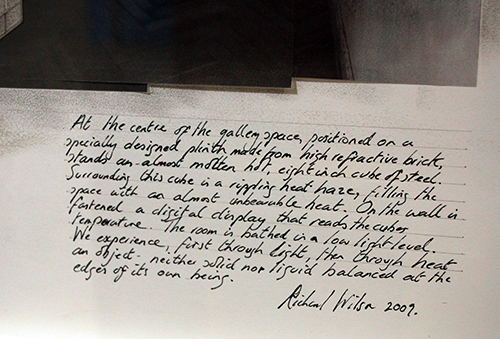 At the centre of the gallery space, positioned on a
specially designed plinth made from high refractive brick,
stands an almost molten hot, eight inch cube of steel.
Surrounding this cube is a rippling heat haze, filling the
space with an almost unbearable heat. On the wall is
fastened a digital display that reads the cubes
temperature. The room is bathed in a low light level.
We experience, first through light, then through heat
an object - neither solid nor liquid balanced at the
edges of its own being.
Richard Wilson 2009.